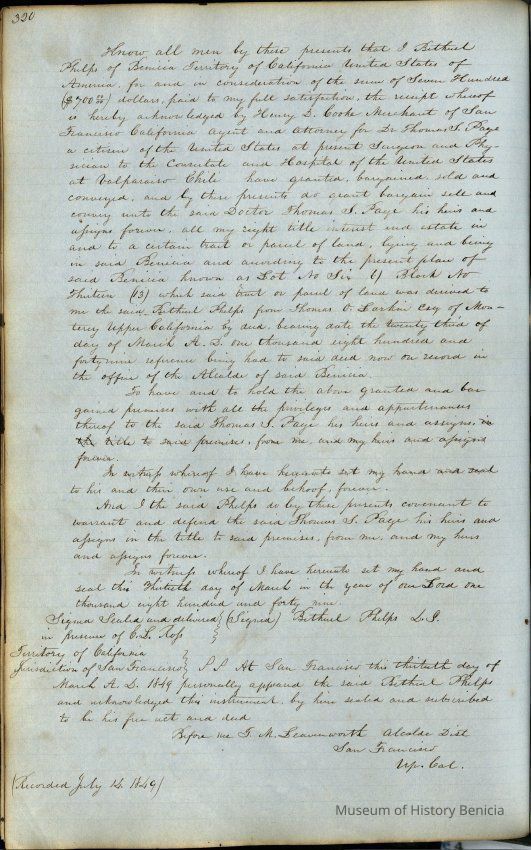 320
Know all men by these presents that I Bethuel
Phelps of Benicia Territory of California United States of
America, for and in consideration of the sum of Seven Hundred
($700 00/100) dollars, paid to my full satisfaction, the receipt whereof
is hereby acknowledged by Henry D. Cooke Merchant of San
Francisco California Agent and Attorney for Dr Thomas S. Page
a citizen of the United States at present Surgeon and Phy-
sician to the Consulate and Hospital of the United States
at Valparaiso Chili have granted, bargained, sold and
conveyed, and by these presents do grant bargain sell and
convey unto the said Doctor Thomas S. Page his heirs and
assigns forever, all my right title interest and estate in
and to a certain tract or parcel of land, lying and being
in said Benicia and according to the present plan of
said Benicia known as Lot No Six Block No
Thirteen (13) which said tract or parcel of land was deeded to
me the said Bethuel Phelps from Thomas O. Larkin Esq of Mon-
terey Upper California by deed, bearing date the twenty third of
day of March A. D. one thousand eight hundred and
forty nine reference being had to said deed now on record in
the office of the Alcalde of said Benicia.
To have and to hold the above granted and bar
gained premises with all the privileges and appurtenances
thereof to the said Thomas S. Page his heirs and assigns, in
the title to said premises, from me, and my heirs and assigns
forever.
In witness whereof I have hereunto set my hand and seal
to his and their own use and behoof, forever.
And I the said Phelps do by these presents covenant to
warrant and defend the said Thomas S. Page his heirs and
assigns in the title to said premises, from me, and my heirs
and assigns forever.
In witness whereof I have hereunto set my hand and
seal this Thirtieth day of March in the year of our Lord one
thousand eight hundred and forty nine.
Signed Sealed and delivered (Signed) Bethuel Phelps L. S.
in presence of C. L. Ross
Territory of California
Jurisdiction of San Francisco S. S. At San Francisco this thirtieth day of
March A. D. 1849 personally appeared the said Bethuel Phelps
and acknowledged this instrument, by him sealed and subscribed
to be his free act and deed
Before me T. M. Leavenworth Alcalde Dist
San Francisco
Up. Cal.
(Recorded July 14. 1849)
Museum of History Benicia